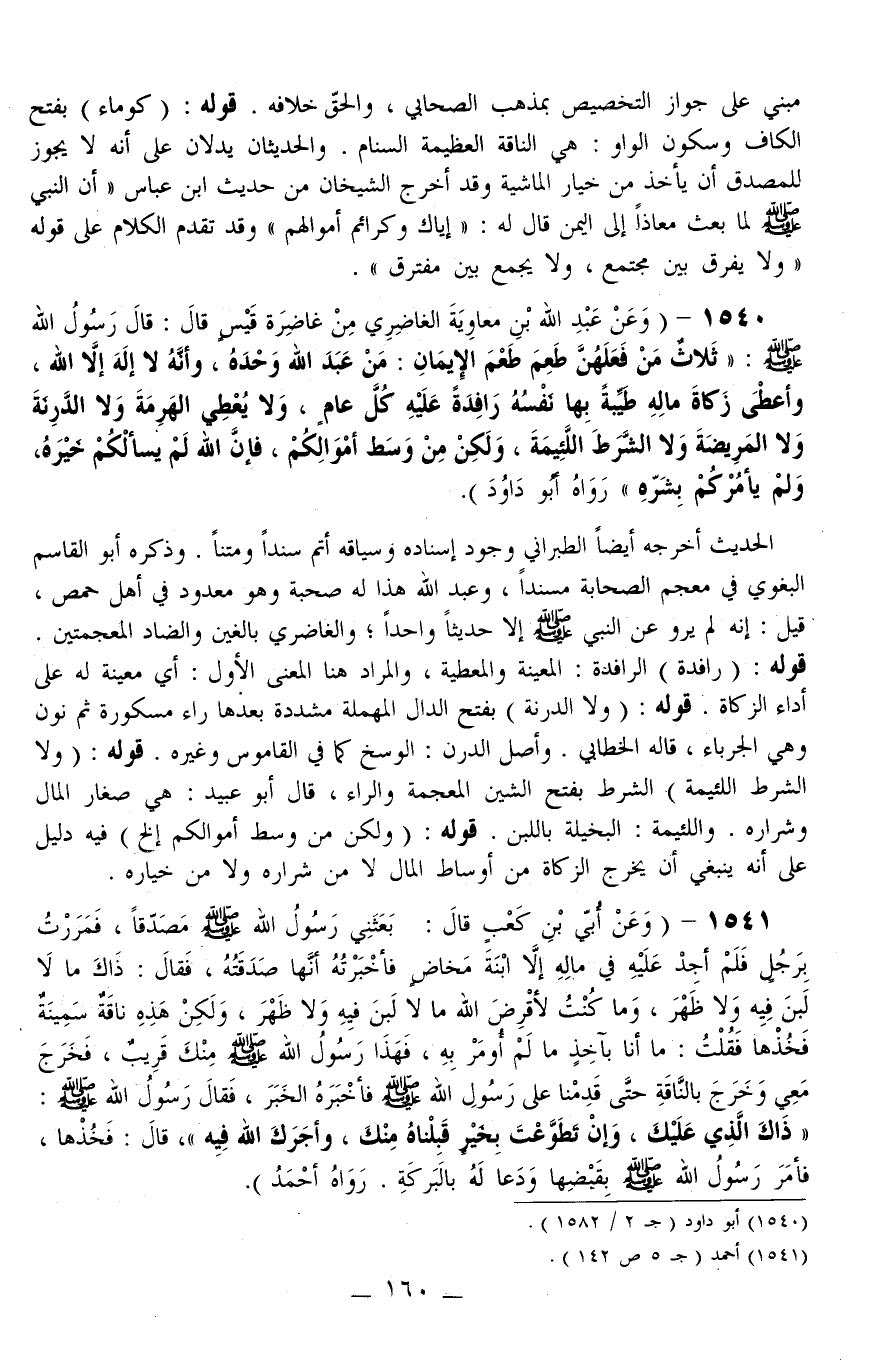 مبني على جواز التخصيص بمذهب الصحابي ، والحقّ خلافه . قوله : ( كوماء ) بفتح
الكاف وسكون الواو : هي الناقة العظيمة السنام . والحديثان يدلان على أنه لا يجوز
للمصدق أن يأخذ من خيار الماشية وقد أخرج الشيخان من حديث ابن عباس « أن النبي
ﷺ لما بعث معاذاً إلى اليمن قال له : « إياك وكرائم أموالهم » وقد تقدم الكلام على قوله
« ولا يفرق بين مجتمع ، ولا يجمع بين مفترق » .
١٥٤٠ – ( وَعَنْ عَبْدِ الله بْنِ معاوِيَةَ الغاضِرِي مِنْ غاضِرَة قَيْسٍ قالَ : قالَ رَسُولُ الله
ﷺ : « ثَلاثٌ مَنْ فَعَلَهُنَّ طَعِمَ طَعْمَ الإِيمَانِ : مَنْ عَبَدَ الله وَحْدَهُ ، وأنَّهُ لا إلَهَ إلَّا الله ،
وأعطَى زَكاةَ مالِهِ طَيِّبةً بها نَفْسُهُ رَافِدَةً عَلَيْهِ كُلَّ عامٍ ، وَلا يُعْطِي الهَرِمَةَ وَلا الدَّرِنَةَ
وَلا المَرِيضَةَ وَلا الشَّرَطَ اللَّئِيمَةَ ، وَلَكِنْ مِنْ وَسَط أمْوَالِكُمْ ، فإنَّ الله لَمْ يسألْكُمْ خَيْرَهُ،
وَلمْ يأمُرْكُمْ بِشَرّهِ » رَوَاهُ أبُو دَاوُدَ ).
الحديث أخرجه أيضاً الطبراني وجود إسناده وسياقه أتم سنداً ومتناً . وذكره أبو القاسم
البغوي في معجم الصحابة مسنداً ، وعبد الله هذا له صحبة وهو معدود في أهل حمص ،
قيل : إنه لم يرو عن النبي ﷺ إلا حديثاً واحداً ؛ والغاضري بالغين والضاد المعجمتين .
قوله : ( رافدة ) الرافدة : المعينة والمعطية ، والمراد هنا المعنى الأول : أي معينة له على
أداء الزكاة . قوله : ( ولا الدرنة ) بفتح الدال المهملة مشددة بعدها راء مسكورة ثم نون
وهي الجرباء ، قاله الخطابي . وأصل الدرن : الوسخ كما في القاموس وغيره . قوله : ( ولا
الشرط اللئيمة ) الشرط بفتح الشين المعجمة والراء ، قال أبو عبيد : هي صغار المال
وشراره . واللئيمة : البخيلة باللبن . قوله : ( ولكن من وسط أموالكم إلخ ) فيه دليل
على أنه ينبغي أن يخرج الزكاة من أوساط المال لا من شراره ولا من خياره .
١٥٤١ – ( وَعَنْ أُبيّ بْنِ كَعْبٍ قالَ : بَعَثَنِي رَسُولُ الله ﷺ مَصَدّقاً ، فَمَرَرْتُ
بِرَجُلٍ فَلَمْ أجِدْ عَلَيْهِ في مالِهِ إلَّا ابْنَةَ مَخاضٍ فأخْبَرْتُهُ أنَّها صَدَقَتُهُ ، فَقالَ : ذَاكَ ما لَا
لَبنَ فِيهِ وَلا ظَهْرَ ، وَما كُنْتُ لأُقْرِضَ الله ما لا لَبنَ فيهِ وَلا ظَهْرَ ، وَلَكِنْ هَذِهِ ناقَةٌ سَمِينَةٌ
فَخُذْها فَقُلْتُ : ما أنا بآخِذٍ ما لَمْ أُومَرْ بِهِ ، فَهَذَا رَسُولُ الله ﷺ مِنْكَ قَرِيبٌ ، فَخَرَجَ
مَعِي وَخَرَجَ بالنَّاقَةِ حتَّى قَدِمْنا على رَسُولِ الله ﷺ فأخْبَرَهُ الخَبَرَ ، فَقالَ رَسُولُ الله ﷺ :
« ذَاكَ الَّذِي عَلَيْكَ ، وَإنْ تَطَوَّعْتَ بِخَيْرٍ قَبِلْناهُ مِنْكَ ، وأجَرَكَ الله فِيه »، قالَ : فَخُذْها ،
فأمَرَ رَسُولُ الله ﷺ بِقَبْضِها وَدَعا لَهُ بالبَرَكَةِ . رَوَاهُ أحْمَدُ ).
(١٥٤٠) أبو داود ( جـ ٢ / ١٥٨٢ ) .
(١٥٤١) أحمد ( جـ ٥ ص ١٤٢ ) .
_ ١٦٠ _